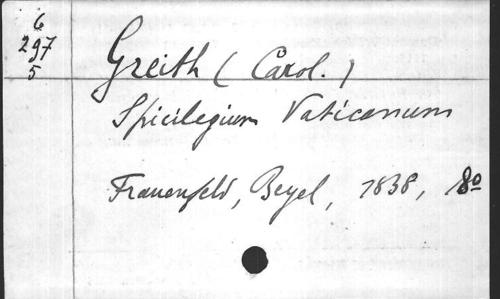 6
297
5
Greith (Carol.)
Spicilegium Vaticanum
Frauenfeld, Beyel, 1838, 8o